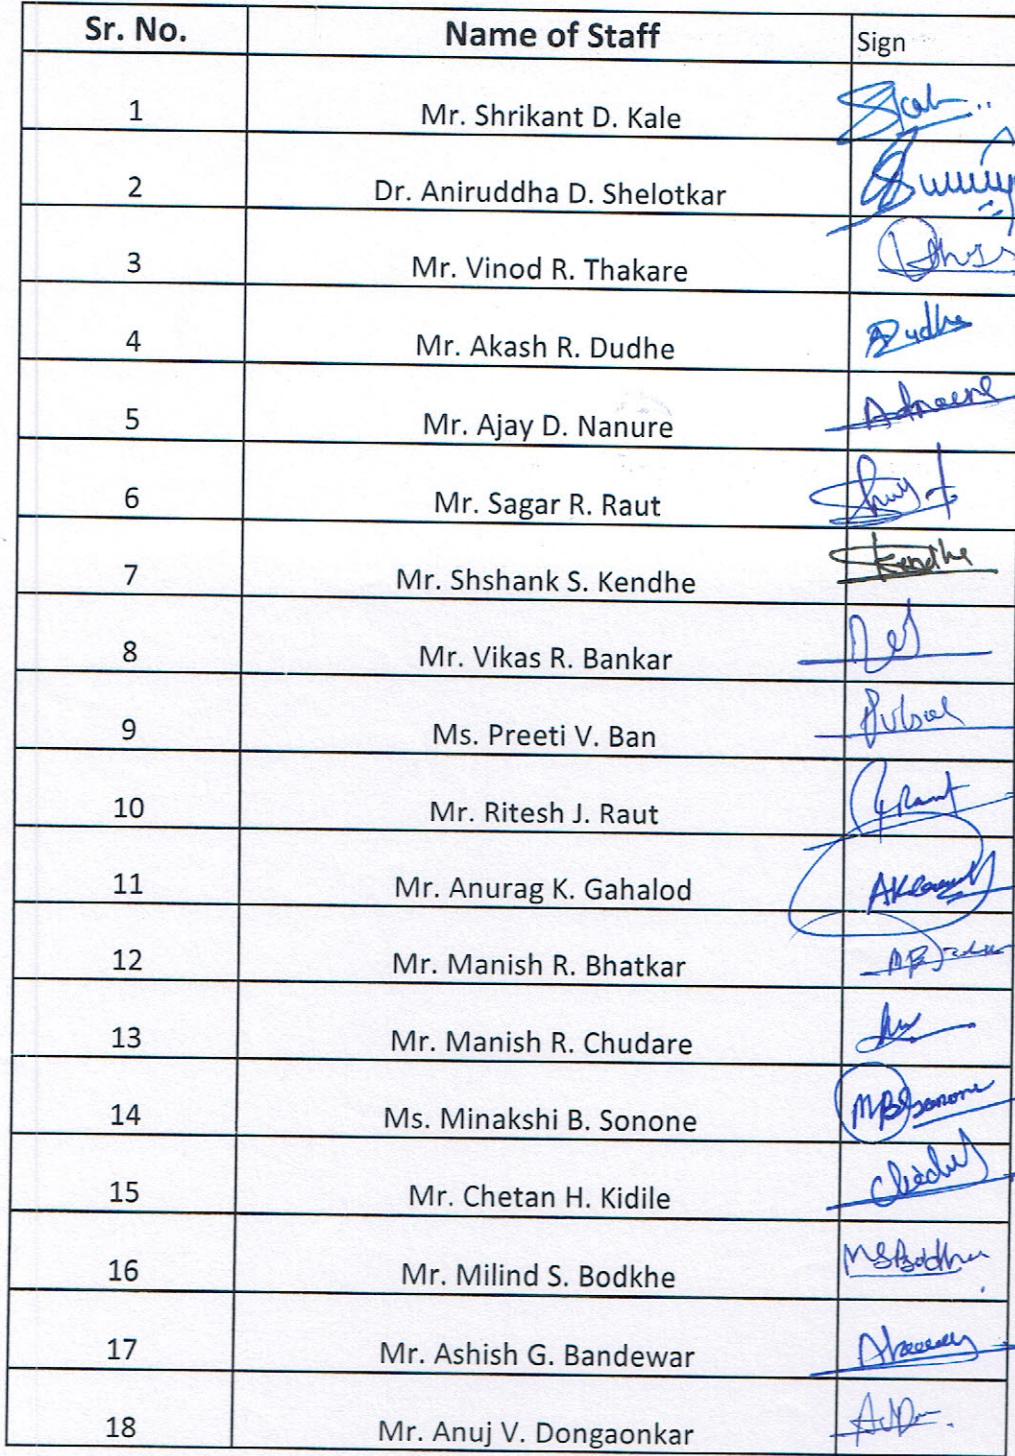 Sr. No. Name of Staff Sign
1 Mr. Shrikant D. Kale
2 Dr. Aniruddha D. Shelotkar
3 Mr. Vinod R. Thakare
4 Mr. Akash R. Dudhe Dudhe
5 Mr. Ajay D. Nanure
6 Mr. Sagar R. Raut
7 Mr. Shshank S. Kendhe Kendhe
8 Mr. Vikas R. Bankar
9 Ms. Preeti V. Ban
10 Mr. Ritesh J. Raut
11 Mr. Anurag K. Gahalod
12 Mr. Manish R. Bhatkar
13 Mr. Manish R. Chudare
14 Ms. Minakshi B. Sonone MBSonone
15 Mr. Chetan H. Kidile
16 Mr. Milind S. Bodkhe
17 Mr. Ashish G. Bandewar
18 Mr. Anuj V. Dongaonkar